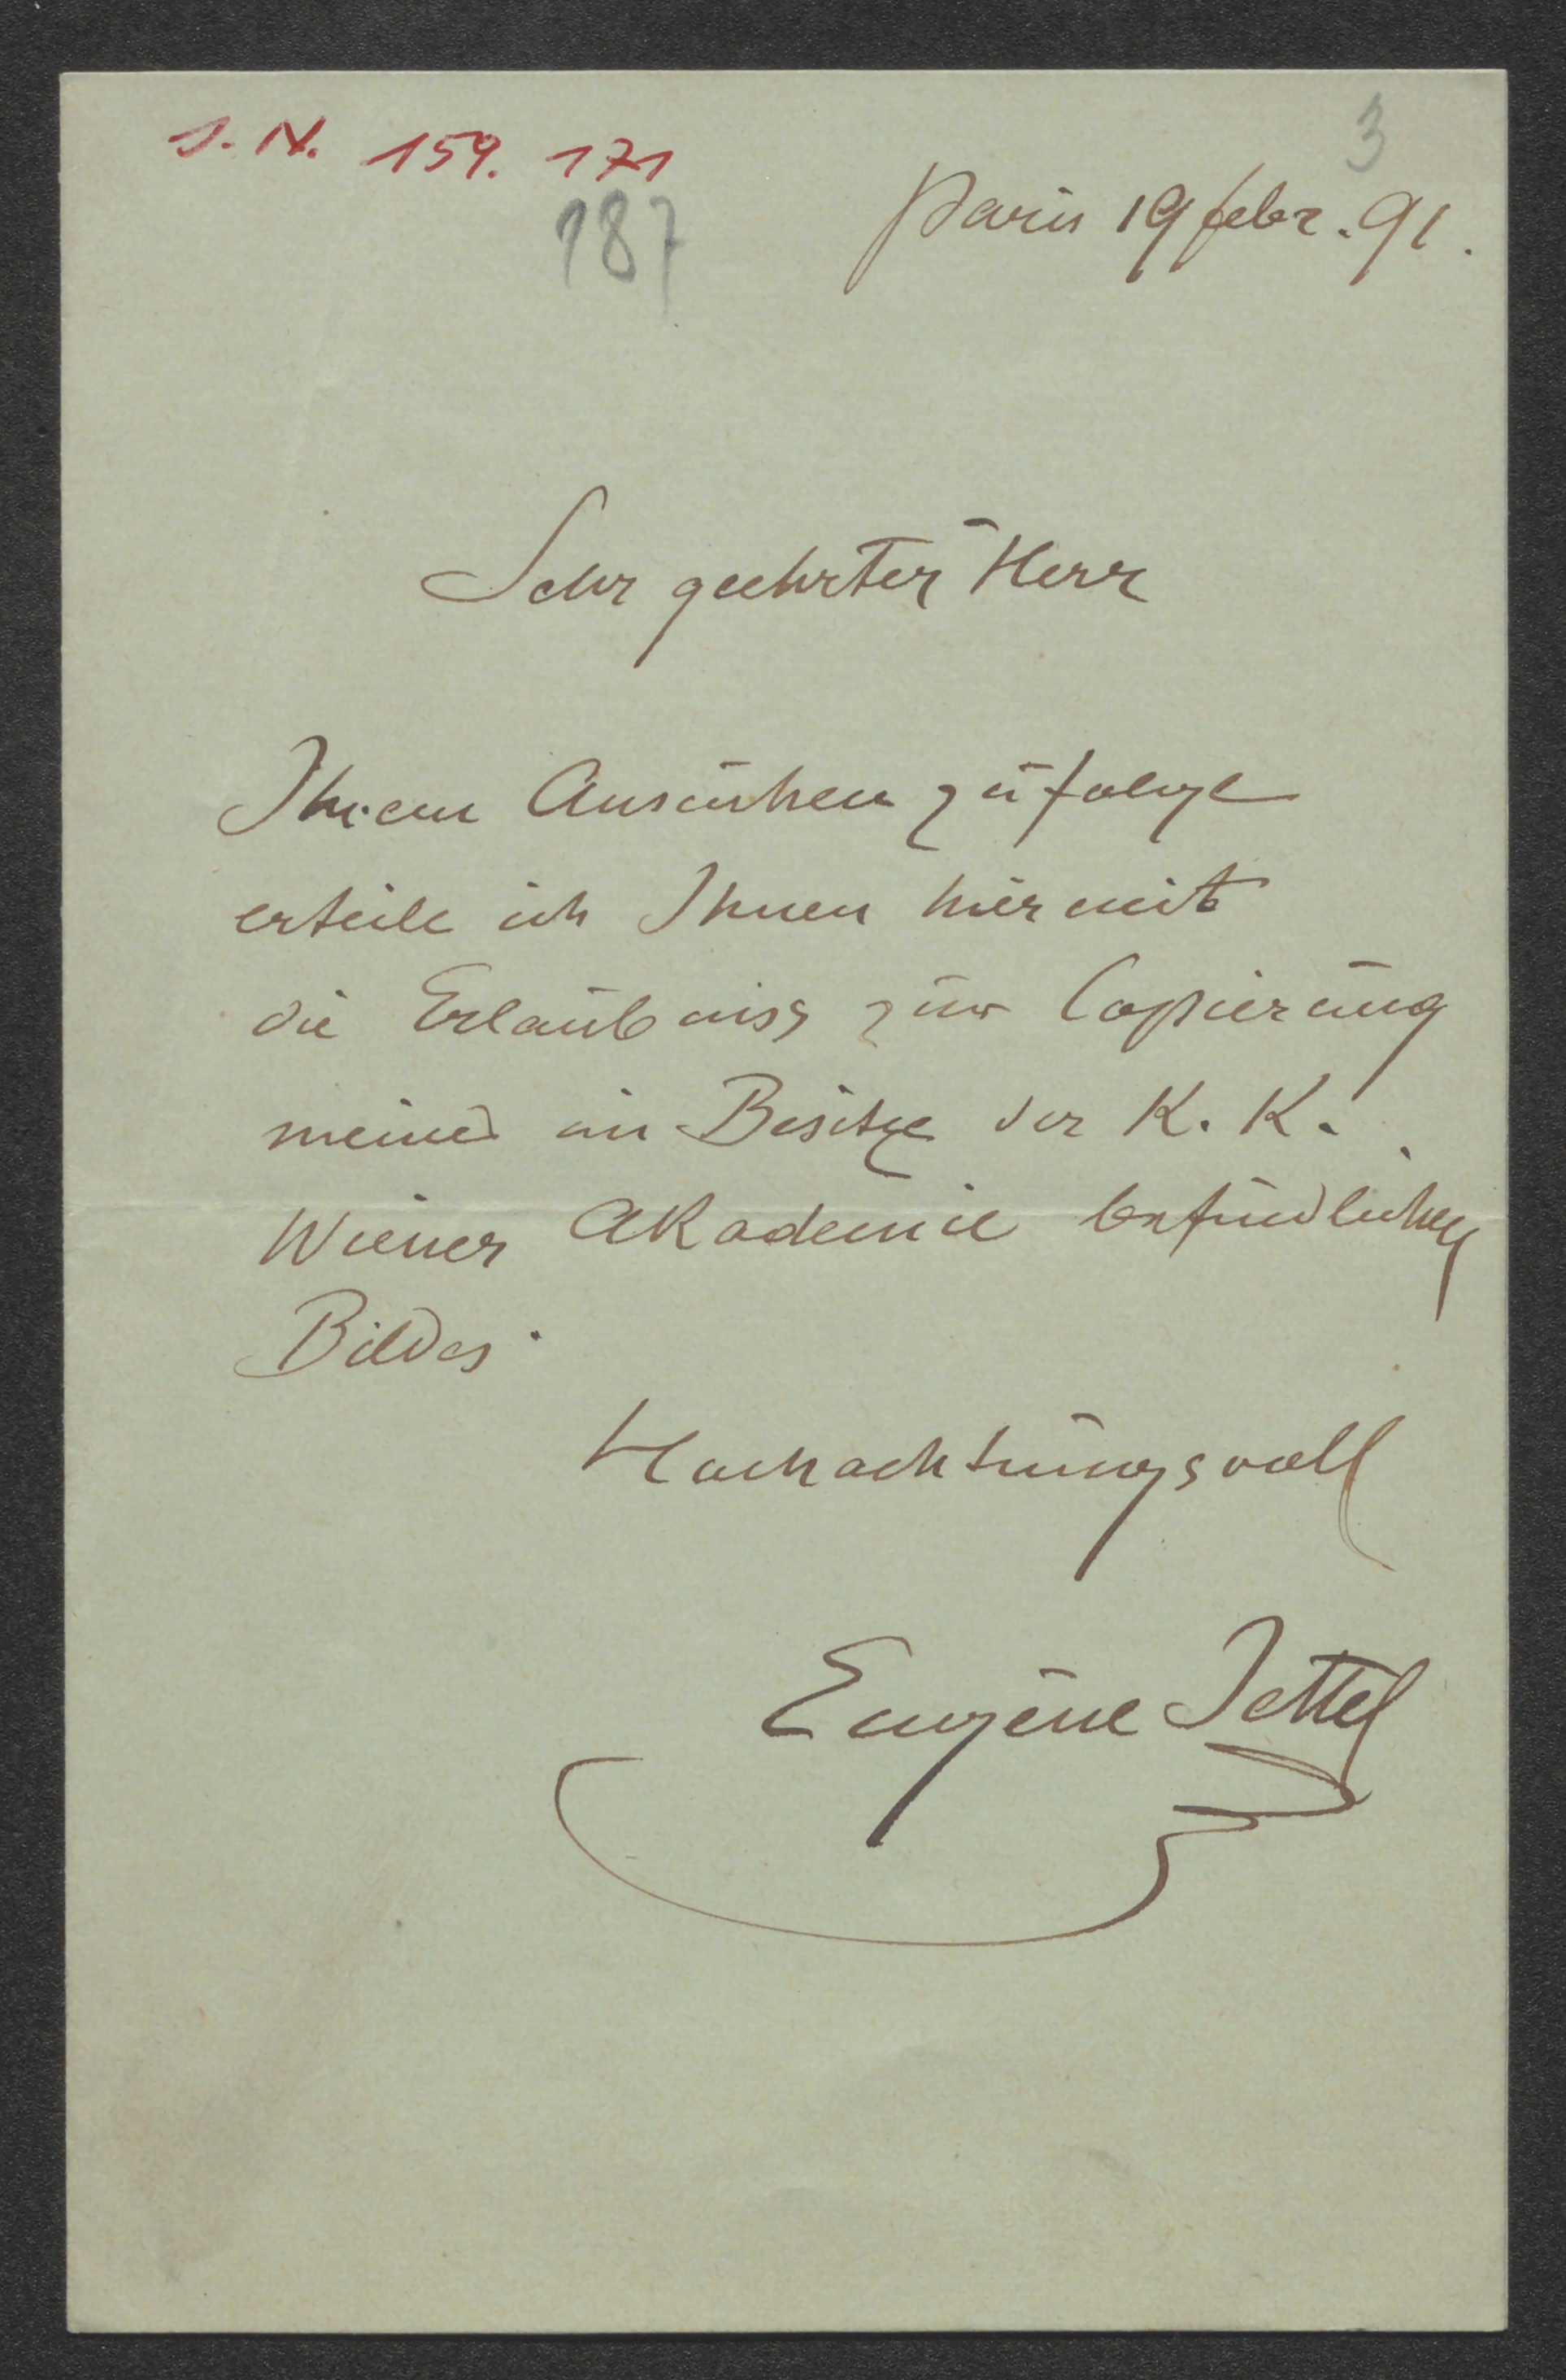 J. N. 159. 171
3
187
Paris 19 febr. 91.
Sehr geehrter Herr
Ihrem Ansuchen zufolge
erteile ich Ihnen hiermit
die Erlaubniss zur Copierung
meines im Besitze der K. K.
Wiener Akademie befindlichen
Bildes.
Hochachtungsvoll
Eugène Jettel